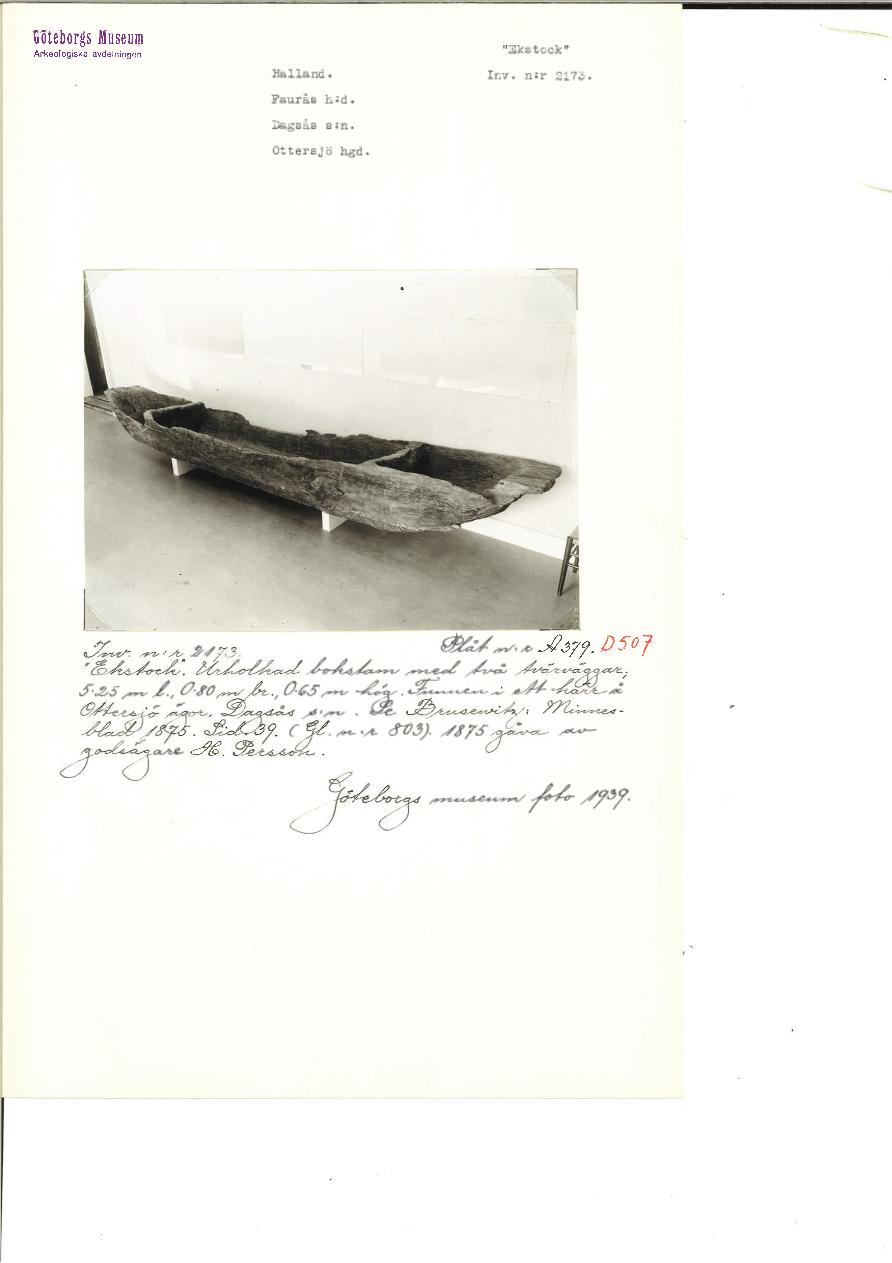 Göteborgs Museum
Arkeologiska avdelningen
"Ekstock"
Halland.
Inv. n:r 2173.
Faurås h:d.
Dagsås s:n.
Ottersjö hgd.
Inv. n:r 2173.
Plåt n:r A379. D507
"Ekstock". Urholkad bokstam med två tvärväggar;
5.25 m l., 0.80 m br., 0.65 m hög. Funnen i ett kärr å
Ottersjö ägor, Dagsås s:n. Se Brusewitz: Minnes-
blad 1875. Sid. 39. (Gl. n:r 803). 1875 gåva av
godsägare H. Persson.
Göteborgs museum foto 1939.